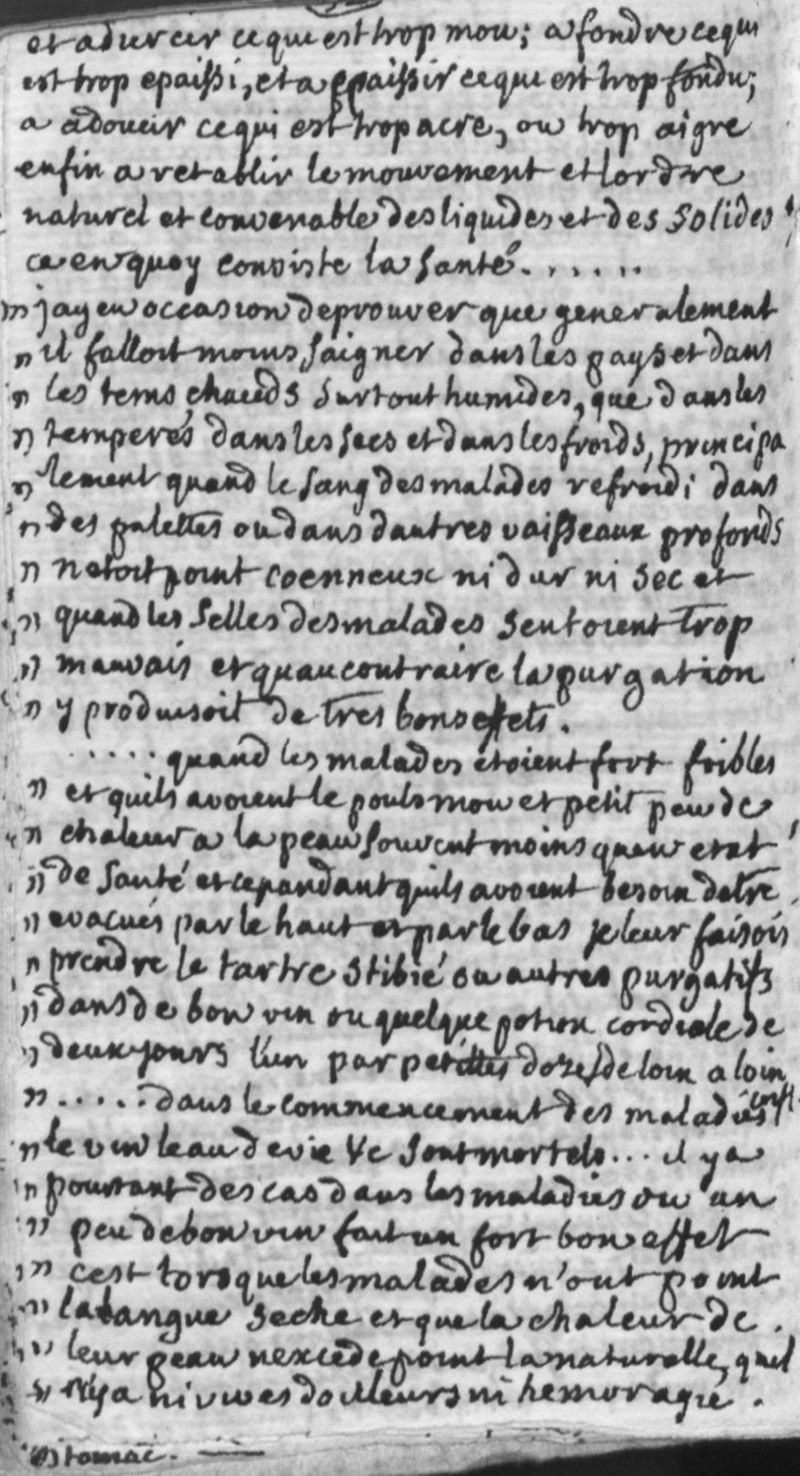 et adurcir ce qui est trop mou; a fondre ce qui
est trop epaissi, et a epaissir ce qui est trop fondu;
a adoucir ce qui est trop acre, ou trop aigre
enfin a retablir le mouvement et lordre
naturel et convenable des liquides et des solides
ce en quoy consiste la santé......
jay eu occasion deprouver que generalement
" il falloit moins saigner dans les pays et dans
" les tems chauds surtout humides, que dans les
" temperés dans les secs et dans les froids, principa
" lement quand le sang des malades refroidi dans
" des palettes ou dans dautres vaisseaux profonds
" netoit point coenneux ni dur ni sec et
" quand les selles des malades sentoient trop
" mauvais et quau contraire la purgation
" y produisoit de tres bons effets.
..... quand les malades etoient fort foibles
" et quils avoient le pouls mou et petit peu de
" chaleur a la peau souvent moins quen etat
" de santé et cependant quils avoient besoin detre
" evacués par le haut et par le bas je leur faisois
" prendre le tartre stibié ou autres purgatifs
" dans de bon vin ou quelque potion cordiale de
" deux jours l'un par petittes dozes de loin a loin
" ..... dans le commencement des maladies
" le vin leau de vie &c sont mortels... il y a
" pourtant des cas dans les maladies ou un
" peu de bon vin fait un fort bon effet
" cest lorsque les malades n'ont point
" la langue seche et que la chaleur de
" leur peau nexcede point la naturelle, quil
" n'y a ni vives douleurs ni hemoragie.
stomac.